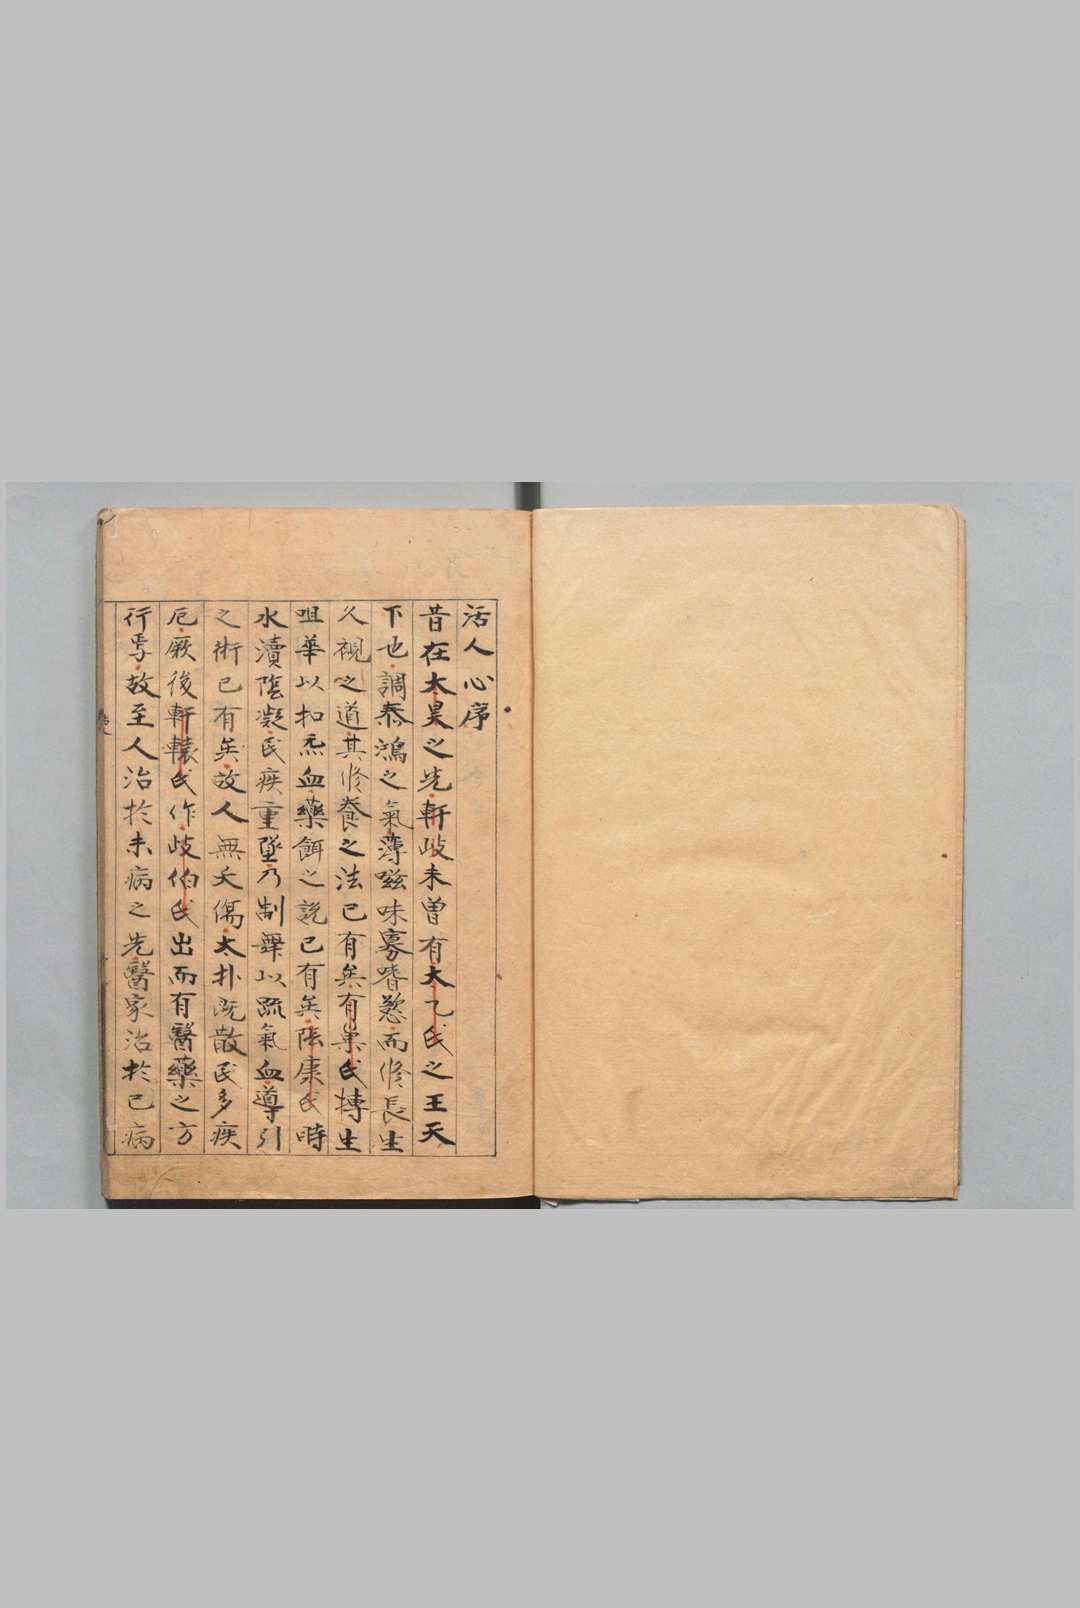 活人心序
昔在太昊之先軒岐未曾有太乙氏之王天
下也調泰鴻之氣薄嗞味寡嗜慾而修長生
久視之道其修養之法已有矣有巢氏摶生
咀華以扣炁血藥餌之說已有矣陰康氏時
水瀆陰凝民疾重墜乃制舞以疏氣血導引
之術已有矣故人無夭傷太朴既散民多疾
厄厥後軒轅氏作歧伯氏出而有醫藥之方
行焉故至人治於未病之先醫家治於已病